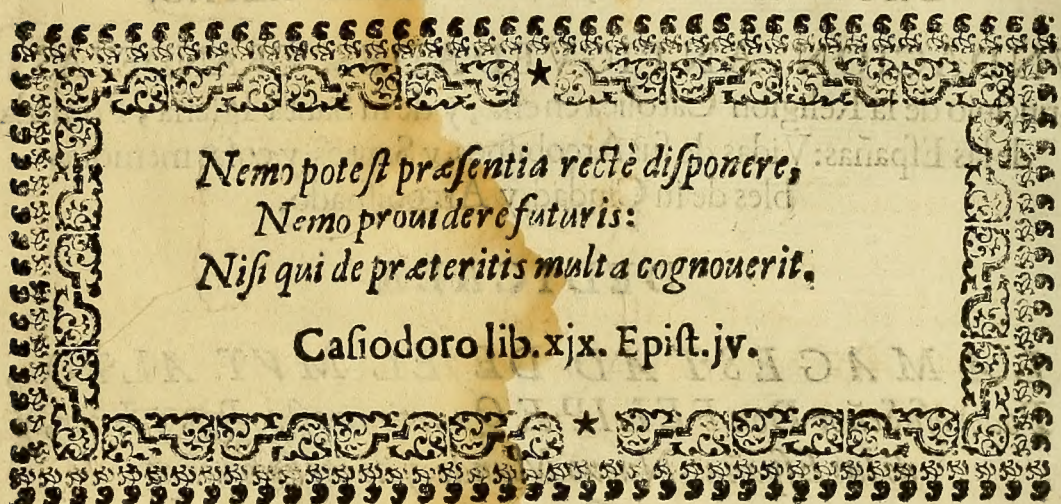 Nemo poteſt præſentia rectè diſponere,
Nemo prouidere futuris:
Niſi qui de præteritis multa cognouerit.
Caſiodoro lib.xjx. Epiſt.jv.